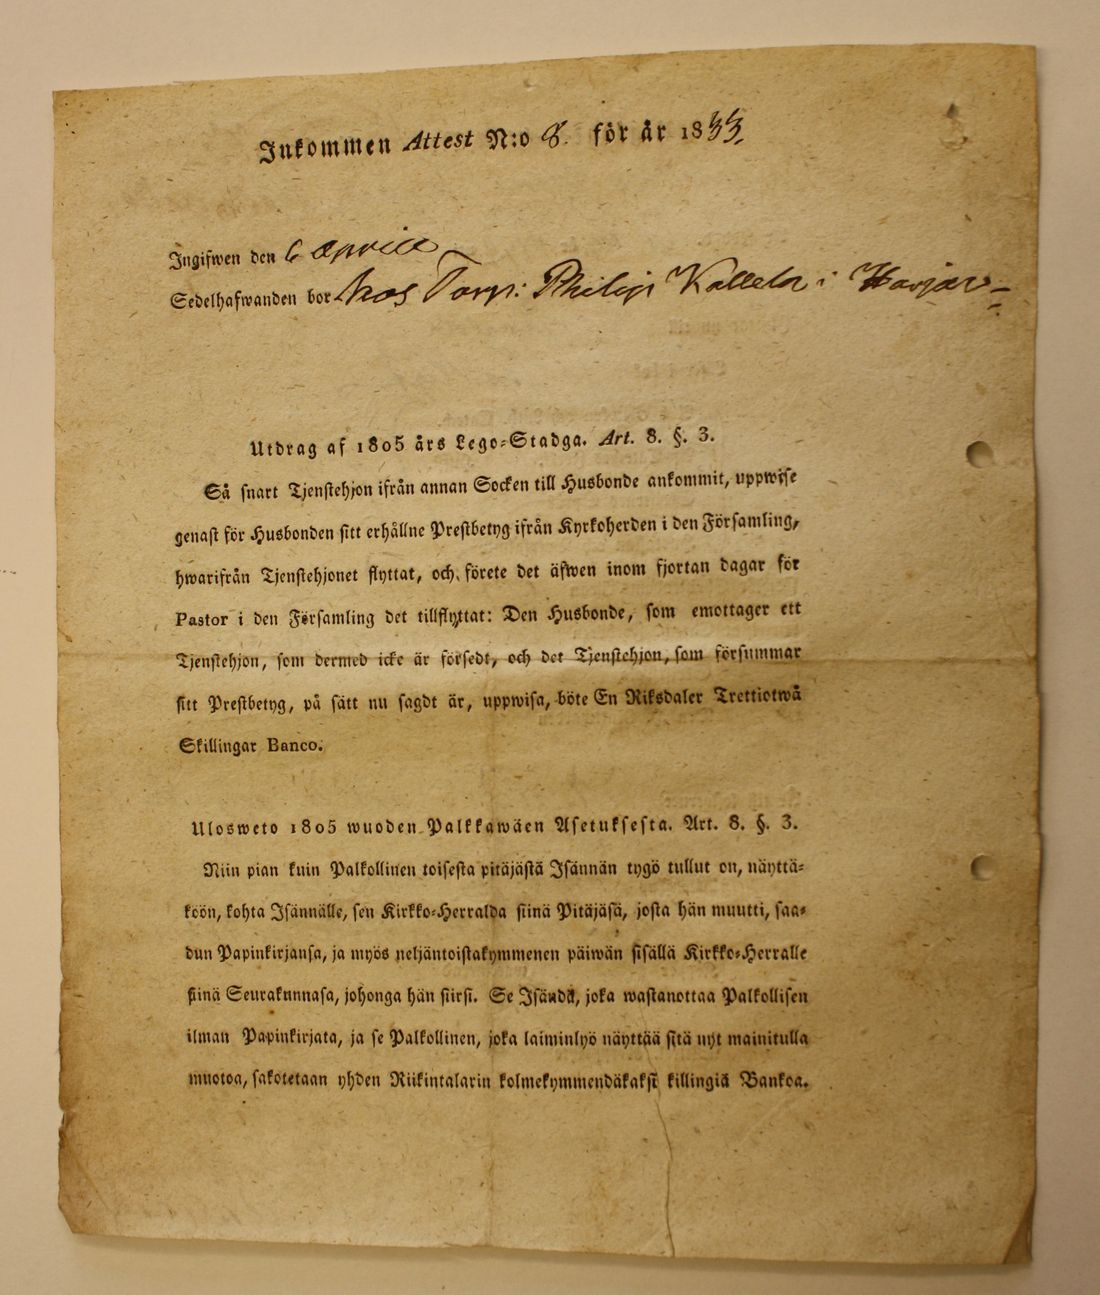 Inkommen Attest N:o 8. för år 1833.
Ingifwen den 6 Aprill
Sedelhafwanden bor hos Torp: Philip Kallela i Harjar=
Utdrag af 1805 års Lego=Stadga. Art. 8. §. 3.
Så snart Tjenstehjon ifrån annan Socken till Husbonde ankommit, uppwise
genast för Husbonden sitt erhållne Prestbetyg ifrån Kyrkoherden i den Församling,
hwarifrån Tjenstehjonet flyttat, och förete det äfwen inom fjortan dagar för
Pastor i den Församling det tillflyttat: Den Husbonde, som emottager ett
Tjenstehjon, som dermed icke är försedt, och det Tjenstehjon, som försummar
sitt Prestbetyg, på sätt nu sagdt är, uppwisa, böte En Riksdaler Trettiotwå
Skillingar Banco.
Ulosweto 1805 wuoden Palkkawäen Asetuksesta. Art. 8. §. 3.
Niin pian kuin Palkollinen toisesta pitäjästä Isännän tygö tullut on, näyttä=
köön, kohta Isännälle, sen Kirkko=Herralda siinä Pitäjäsä, josta hän muutti, saa=
dun Papinkirjansa, ja myös neljäntoistakymmenen päiwän sisällä Kirkko=Herralle
siinä Seurakunnasa, johonga hän siirsi. Se Isändä, joka wastanottaa Palkollisen
ilman Papinkirjata, ja se Palkollinen, joka laiminlyö näyttää sitä nyt mainitulla
muotoa, sakotetaan yhden Riikintalarin kolmekymmendäkaksi killingiä Bankoa.